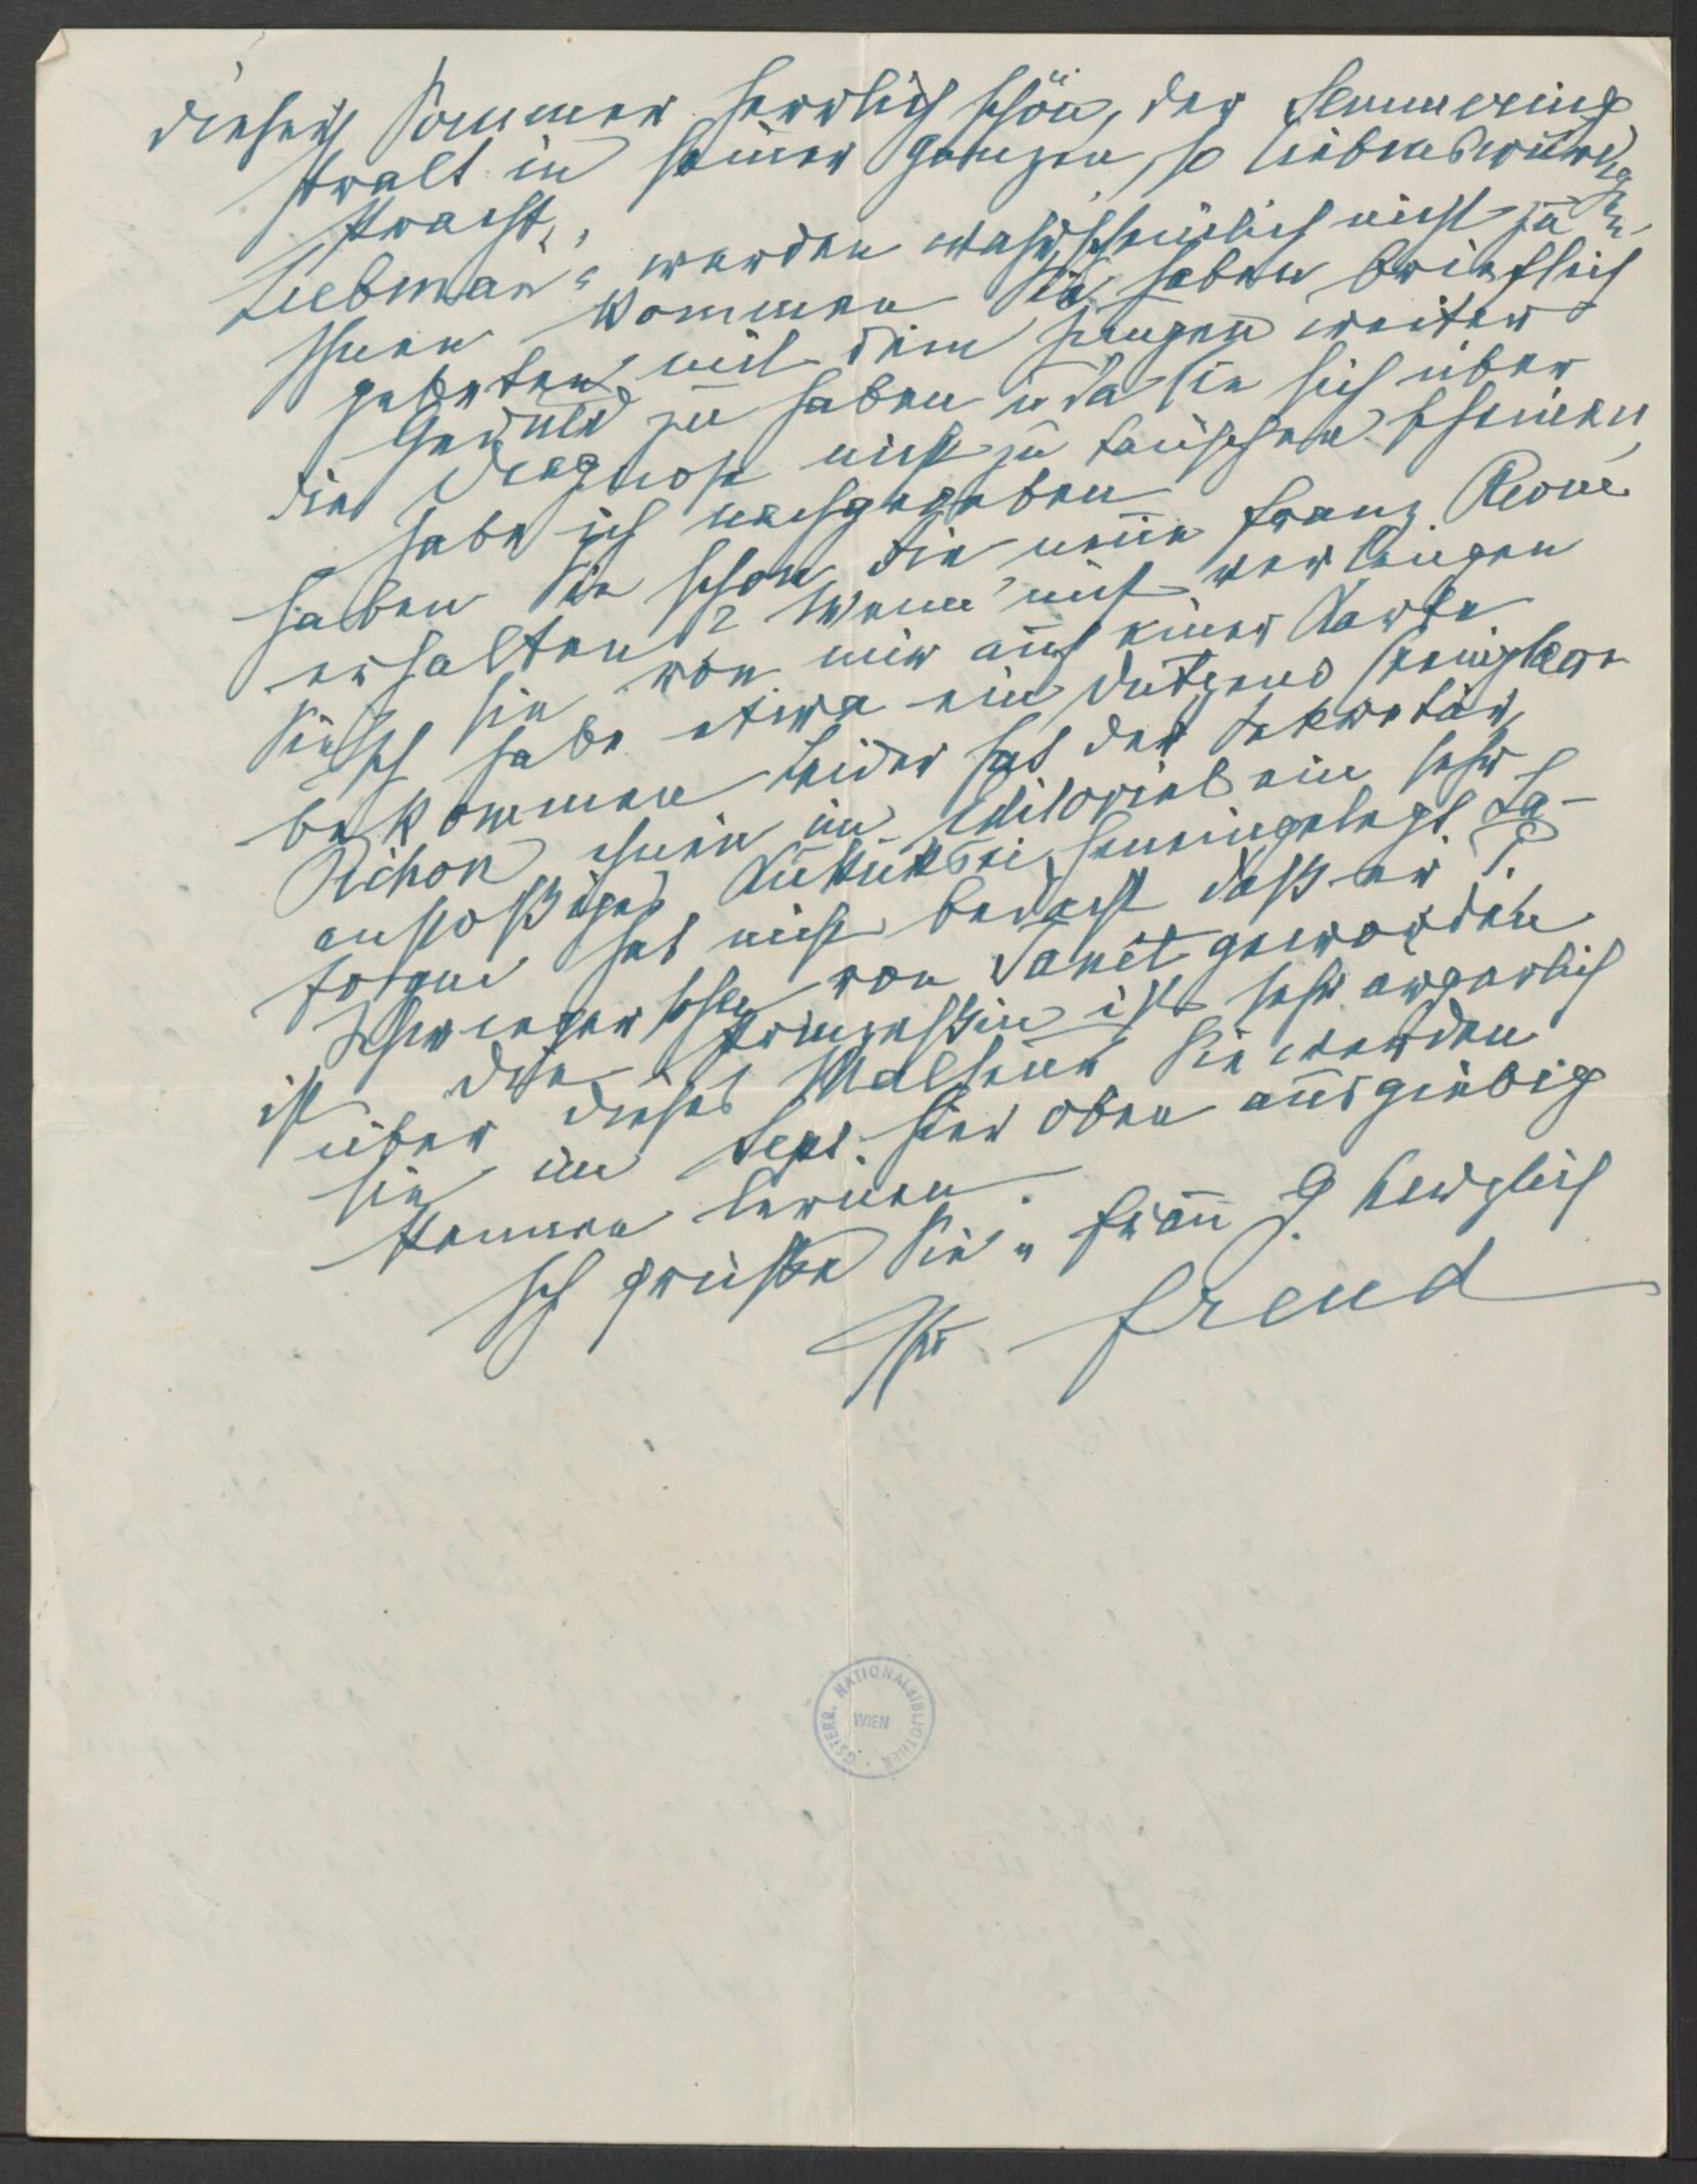 diesen Sommer herrlich schön, der Semmering
stralt in seiner ganzen, so liebenswürdigen
Pracht.
Liebman's werden wahrscheinlich nicht zu
Ihnen kommen. Sie haben brieflich
gebeten mit dem Jungen weiter
Geduld zu haben u da sie sich über
die Diagnose nicht zu täuschen scheinen,
habe ich nachgegeben
Haben Sie schon die neue franz. Revue
erhalten? Wenn nicht verlangen
Sie sie von mir auf einer Karte
Ich habe etwa ein Dutzend Exemplare
bekommen. Leider hat der Sekretär,
Pichon ihnen im Editorial ein sehr
anstößiges Kukuksei hineingelegt. La-
forgue hat nicht bedacht daß er P.
Schwiegersohn von Janet geworden
ist. Die Prinzessin ist sehr ärgerlich
über dieses Malheur. Sie werden
sie im Sept. hier oben ausgiebig
kennen lernen.
Ich grüße Sie u Frau G herzlich
Ihr Freud
ÖSTERR. NATIONALBIBLIOTHEK
WIEN